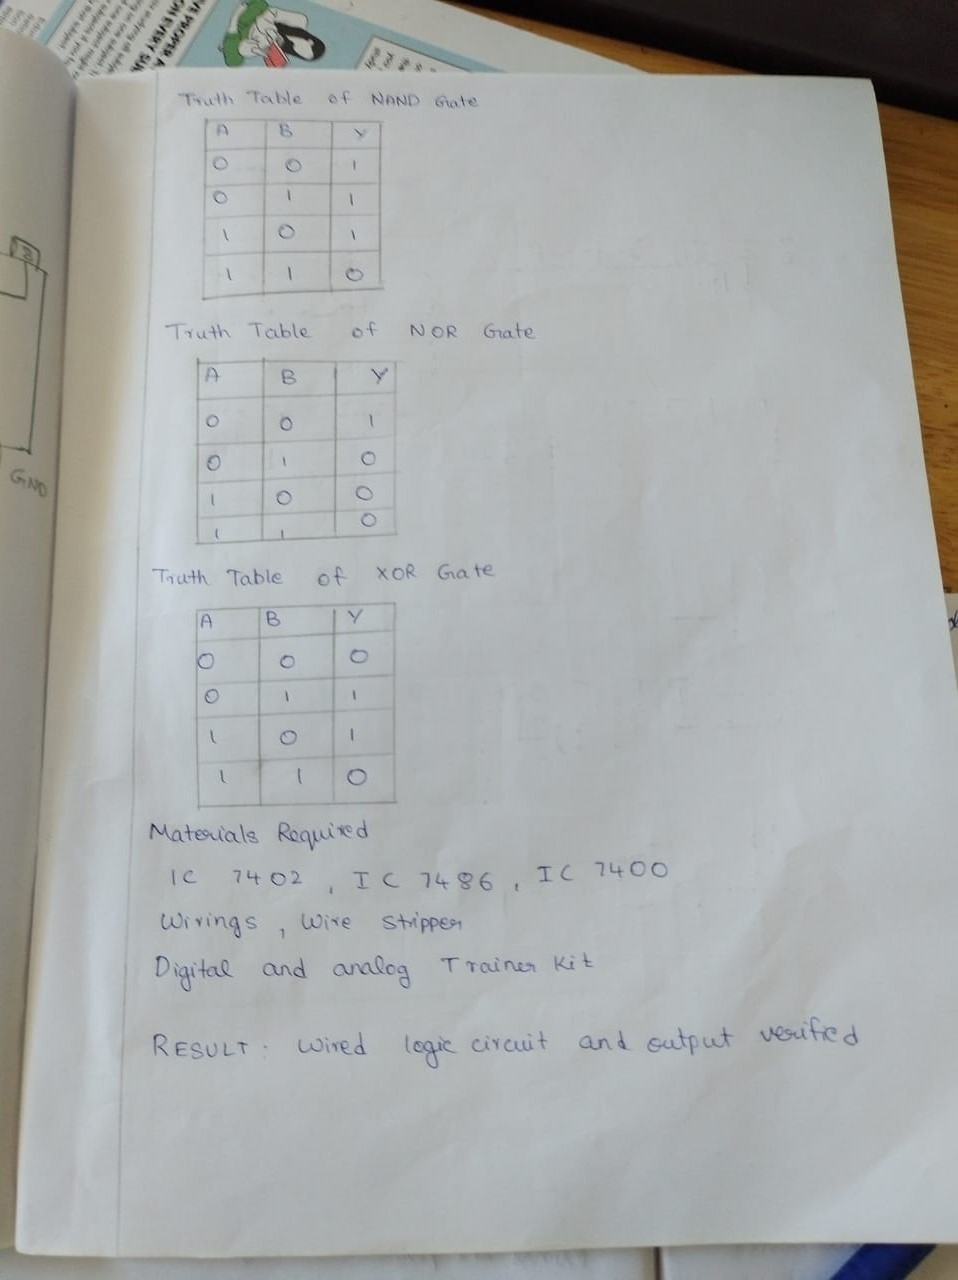 Truth Table of NAND Gate
A B Y
0 0 1
0 1 1
1 0 1
1 1 0
Truth Table of NOR Gate
A B Y
0 0 1
0 1 0
1 0 0
1 1 0
Truth Table of XOR Gate
A B Y
0 0 0
0 1 1
1 0 1
1 1 0
Materials Required
IC 7402, IC 7486, IC 7400
Wirings, Wire stripper
Digital and analog Trainer Kit
RESULT: Wired logic circuit and output verified
GND